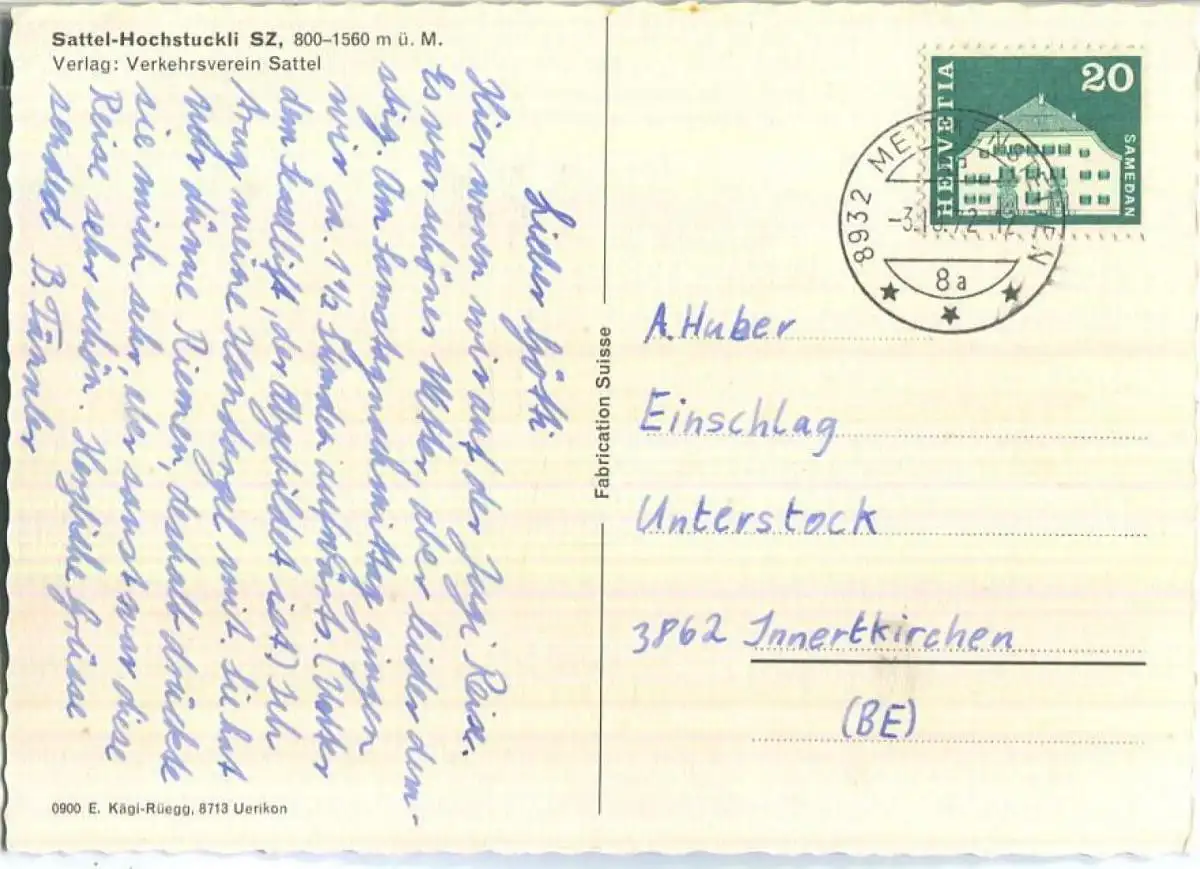 Sattel-Hochstuckli SZ, 800–1560 m ü. M.
Verlag: Verkehrsverein Sattel
Lieber Götti.
Hier waren wir auf der Jugi Reise.
Es war schönes Wetter, aber leider dem-
stig. Am Samstagnachmittag gingen
wir ca. 1 1/2 Stunden aufwärts. (Unter
dem Sesellift, der abgebildet ist) Ich
trug meine Handorgel mit. Sie hat
nur dünne Riemen, deshalb drückte
sie mich sehr, aber sonst war diese
Reise sehr schön. Herzliche Grüsse
sendet B. Tännler
0900 E. Kägi-Rüegg, 8713 Uerikon
Fabrication Suisse
HELVETIA
20
SAMEDAN
8932 METTMENSTETTEN
8a
A. Huber
Einschlag
Unterstock
3862 Innertkirchen
(BE)